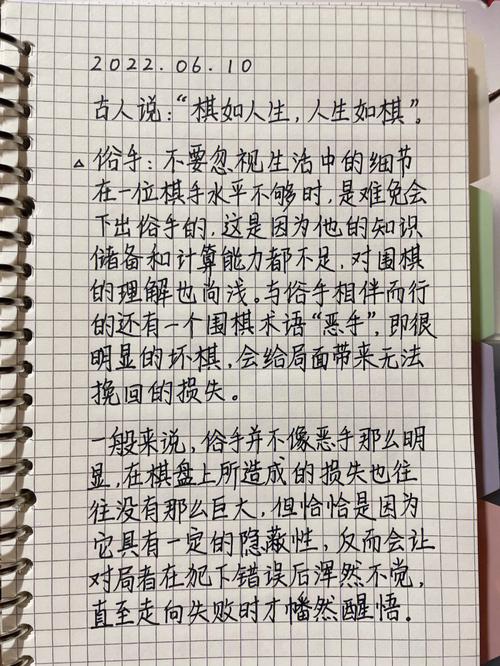 2022.06.10
古人说：“棋如人生，人生如棋”。
△ 俗手：不要忽视生活中的细节
在一位棋手水平不够时，是难免会
下出俗手的，这是因为他的知识
储备和计算能力都不足，对围棋
的理解也尚浅。与俗手相伴而行
的还有一个围棋术语“恶手”，即很
明显的坏棋，会给局面带来无法
挽回的损失。
一般来说，俗手并不像恶手那么明
显，在棋盘上所造成的损失也往
往没有那么巨大，但恰恰是因为
它具有一定的隐蔽性，反而会让
对局者在犯下错误后浑然不觉，
直至走向失败时才幡然醒悟。